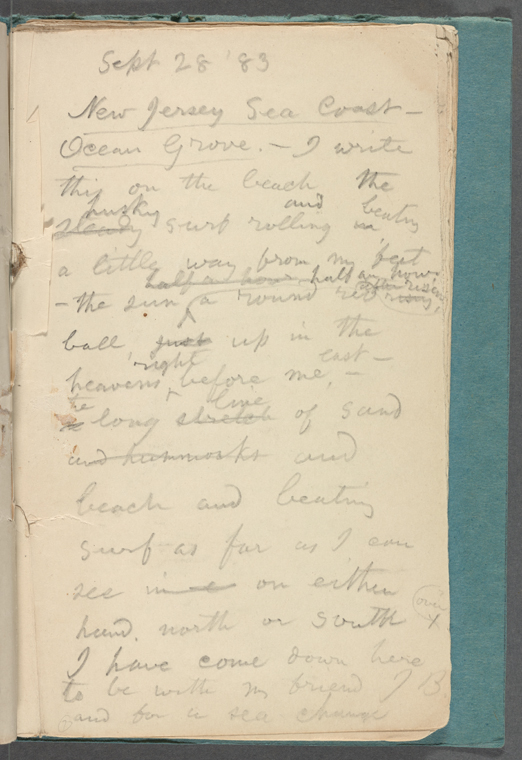 Sept 28 '83
New Jersey Sea Coast -
Ocean Grove. - I write
this on the beach the
husky and beating
steady surf rolling in
a little way from my feet
half an hour half an hour
- the sun a round red after risen rising,
ball, just up in the
right east -
heavens before me, -
the line
a long stretch of sand
and hummocks and
beach and beating
surf as far as I can
see in on either
hand, north or south
over
I have come down here
to be with my friend J B
and for a sea change